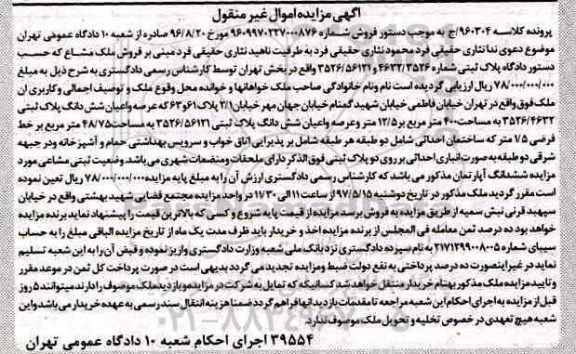 آگهی مزایده اموال غیر منقول
پرونده کلاسه ۹۶۰۳۰۴/ج به موجب دستور فروش شماره ۹۶۰۹۹۷۰۲۲۷۰۰۰۸۷۶ مورخ ۹۶/۸/۲۰ صادره از شعبه ۱۰ دادگاه عمومی تهران
موضوع دعوی ندا نثاری حقیقی فرد محمود نثاری حقیقی فرد به طرفیت ناهید نثاری حقیقی فرد مبنی بر فروش ملک مشاع که حسب
دستور دادگاه پلاک ثبتی شماره ۴۶۳۲/۳۵۲۶ و ۳۵۲۶/۵۶۱۲۱ واقع در بخش تهران توسط کارشناس رسمی دادگستری به شرح ذیل به مبلغ
۷۸/۰۰۰/۰۰۰/۰۰۰ ریال ارزیابی گردیده است نام ونام خانوادگی صاحب ملک خواهانها و خوانده محل وقوع ملک و توصیف اجمالی و کاربری ان
ملک فوق واقع در تهران خیابان فاطمی خیابان شهید گمنام خیابان جهان مهر خیابان ۲/۱ پلاک ۶۱و۶۳ که عرصه واعیان شش دانگ پلاک ثبتی
۳۵۲۶/۴۶۳۲ به مساحت ۴۰۰ متر مربع بر ۱۲/۵ متر وعرصه واعیان شش دانگ پلاک ثبتی ۳۵۲۶/۵۶۱۲۱ به مساحت ۴۸/۷۵ متر مربع بر خط
فرضی ۱/۵ متر که ساختمان احداثی شامل دو طبقه هر طبقه شامل بر پذیرایی اتاق خواب و سرویس بهداشتی حمام و آشپز خانه ودر جبهه
شرقی دو طبقه به صورت انباری احداثی بر روی دو پلاک ثبتی فوق الذکر دارای ملحقات ومنضمات شهری می باشد. وضعیت ثبتی مشاعی مورد
مزایده ششدانگ آپارتمان مذکور می باشد که کارشناس رسمی دادگستری ارزش آن را به مبلغ پایه مزایده ۷۸/۰۰۰/۰۰۰/۰۰۰ ریال تعین نموده
است مقرر گردید ملک مذکور در تاریخ دوشنبه ۹۷/۵/۱۵ از ساعت ۱۱ الی ۱۱/۳۰ در واحد مزایده مجتمع قضایی شهید بهشتی واقع در خیابان
سپهبد قرنی نبش سمیه از طریق مزایده به فروش برسد مزایده از قیمت پایه شروع و کسی که بالاترین قیمت را پیشنهاد نماید برنده مزایده
خواهد بود ده درصد ثمن معامله فی المجلس از برنده مزایده اخذ و خریدار باید ظرف مدت یک ماه از تاریخ مزایده الباقی مبلغ را به حساب
سیبای شماره ۲۱۷۱۲۹۹۰۰۸۰۰۵ به نام سپرده دادگستری نزد بانک ملی شعبه وزارت دادگستری واریز نموده و قبض آن را به این شعبه تسلیم
نماید در غیر اینصورت ده درصد پرداختی به نفع دولت ضبط ومزایده تجدید می گردد بدیهی است در صورت پرداخت کل ثمن در موعد مقرر
و تایید مزایده ملک مذکور بهنام خریدار منتقل خواهد شد کسانیکه که تمایل به شرکت در مزایده و بازدید ملک موصوف را دارند میتوانند ۵ روز
قبل از مزایده به اجرای احکام این شعبه مراجعه تا مقدمات بازدید انها فراهم گردد ضمنا هزینه انتقال سند رسمی به عهده خریدار می باشد واین
شعبه هیچ تعهدی در خصوص تخلیه و تحویل ملک موصوف ندارد.
۳۹۵۵۴ اجرای احکام شعبه ۱۰ دادگاه عمومی تهران